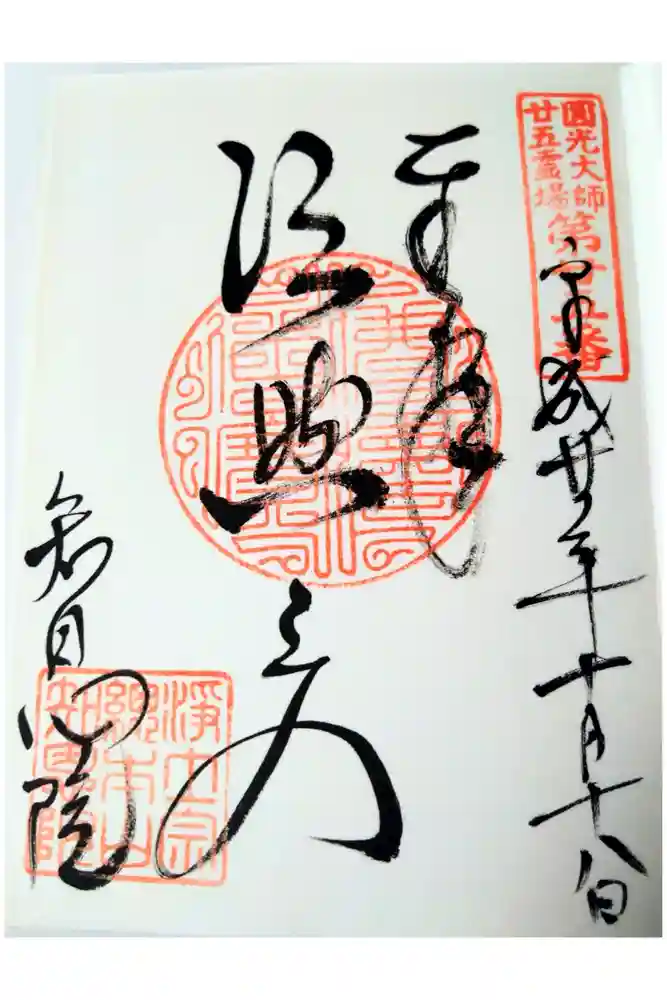 圓光大師
廿五霊場
第廿五番
平成廿年十月十八日
法然上人
知恩院
浄土宗
總本山
知恩院